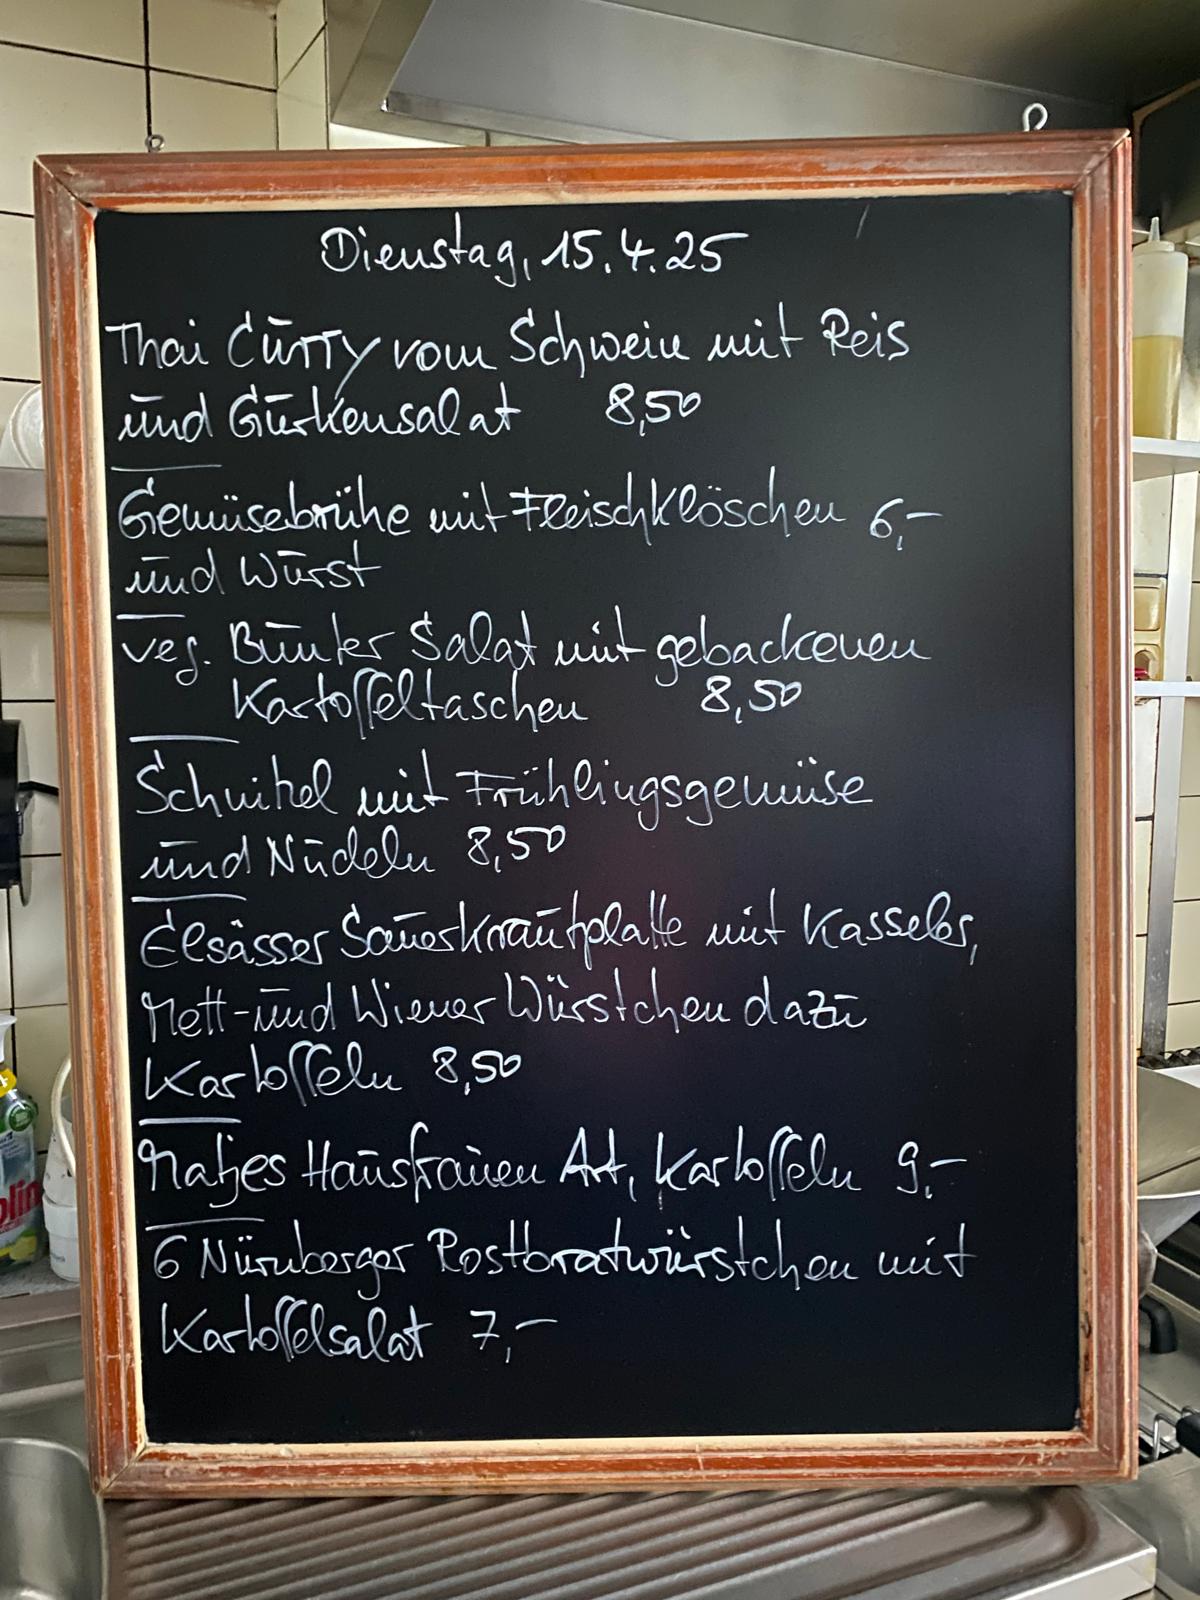 Dienstag, 15.4.25
Thai Curry vom Schwein mit Reis
und Gurkensalat 8,50
Gemüsebrühe mit Fleischklöschen 6,-
und Wurst
veg. Bunter Salat mit gebackenen
Kartoffeltaschen 8,50
Schnitzel mit Frühlingsgemüse
und Nudeln 8,50
Elsässer Sauerkrautplatte mit Kasseler,
Mett- und Wiener Würstchen dazu
Kartoffeln 8,50
Matjes Hausfrauen Art, Kartoffeln 9,-
6 Nürnberger Rostbratwürstchen mit
Kartoffelsalat 7,-